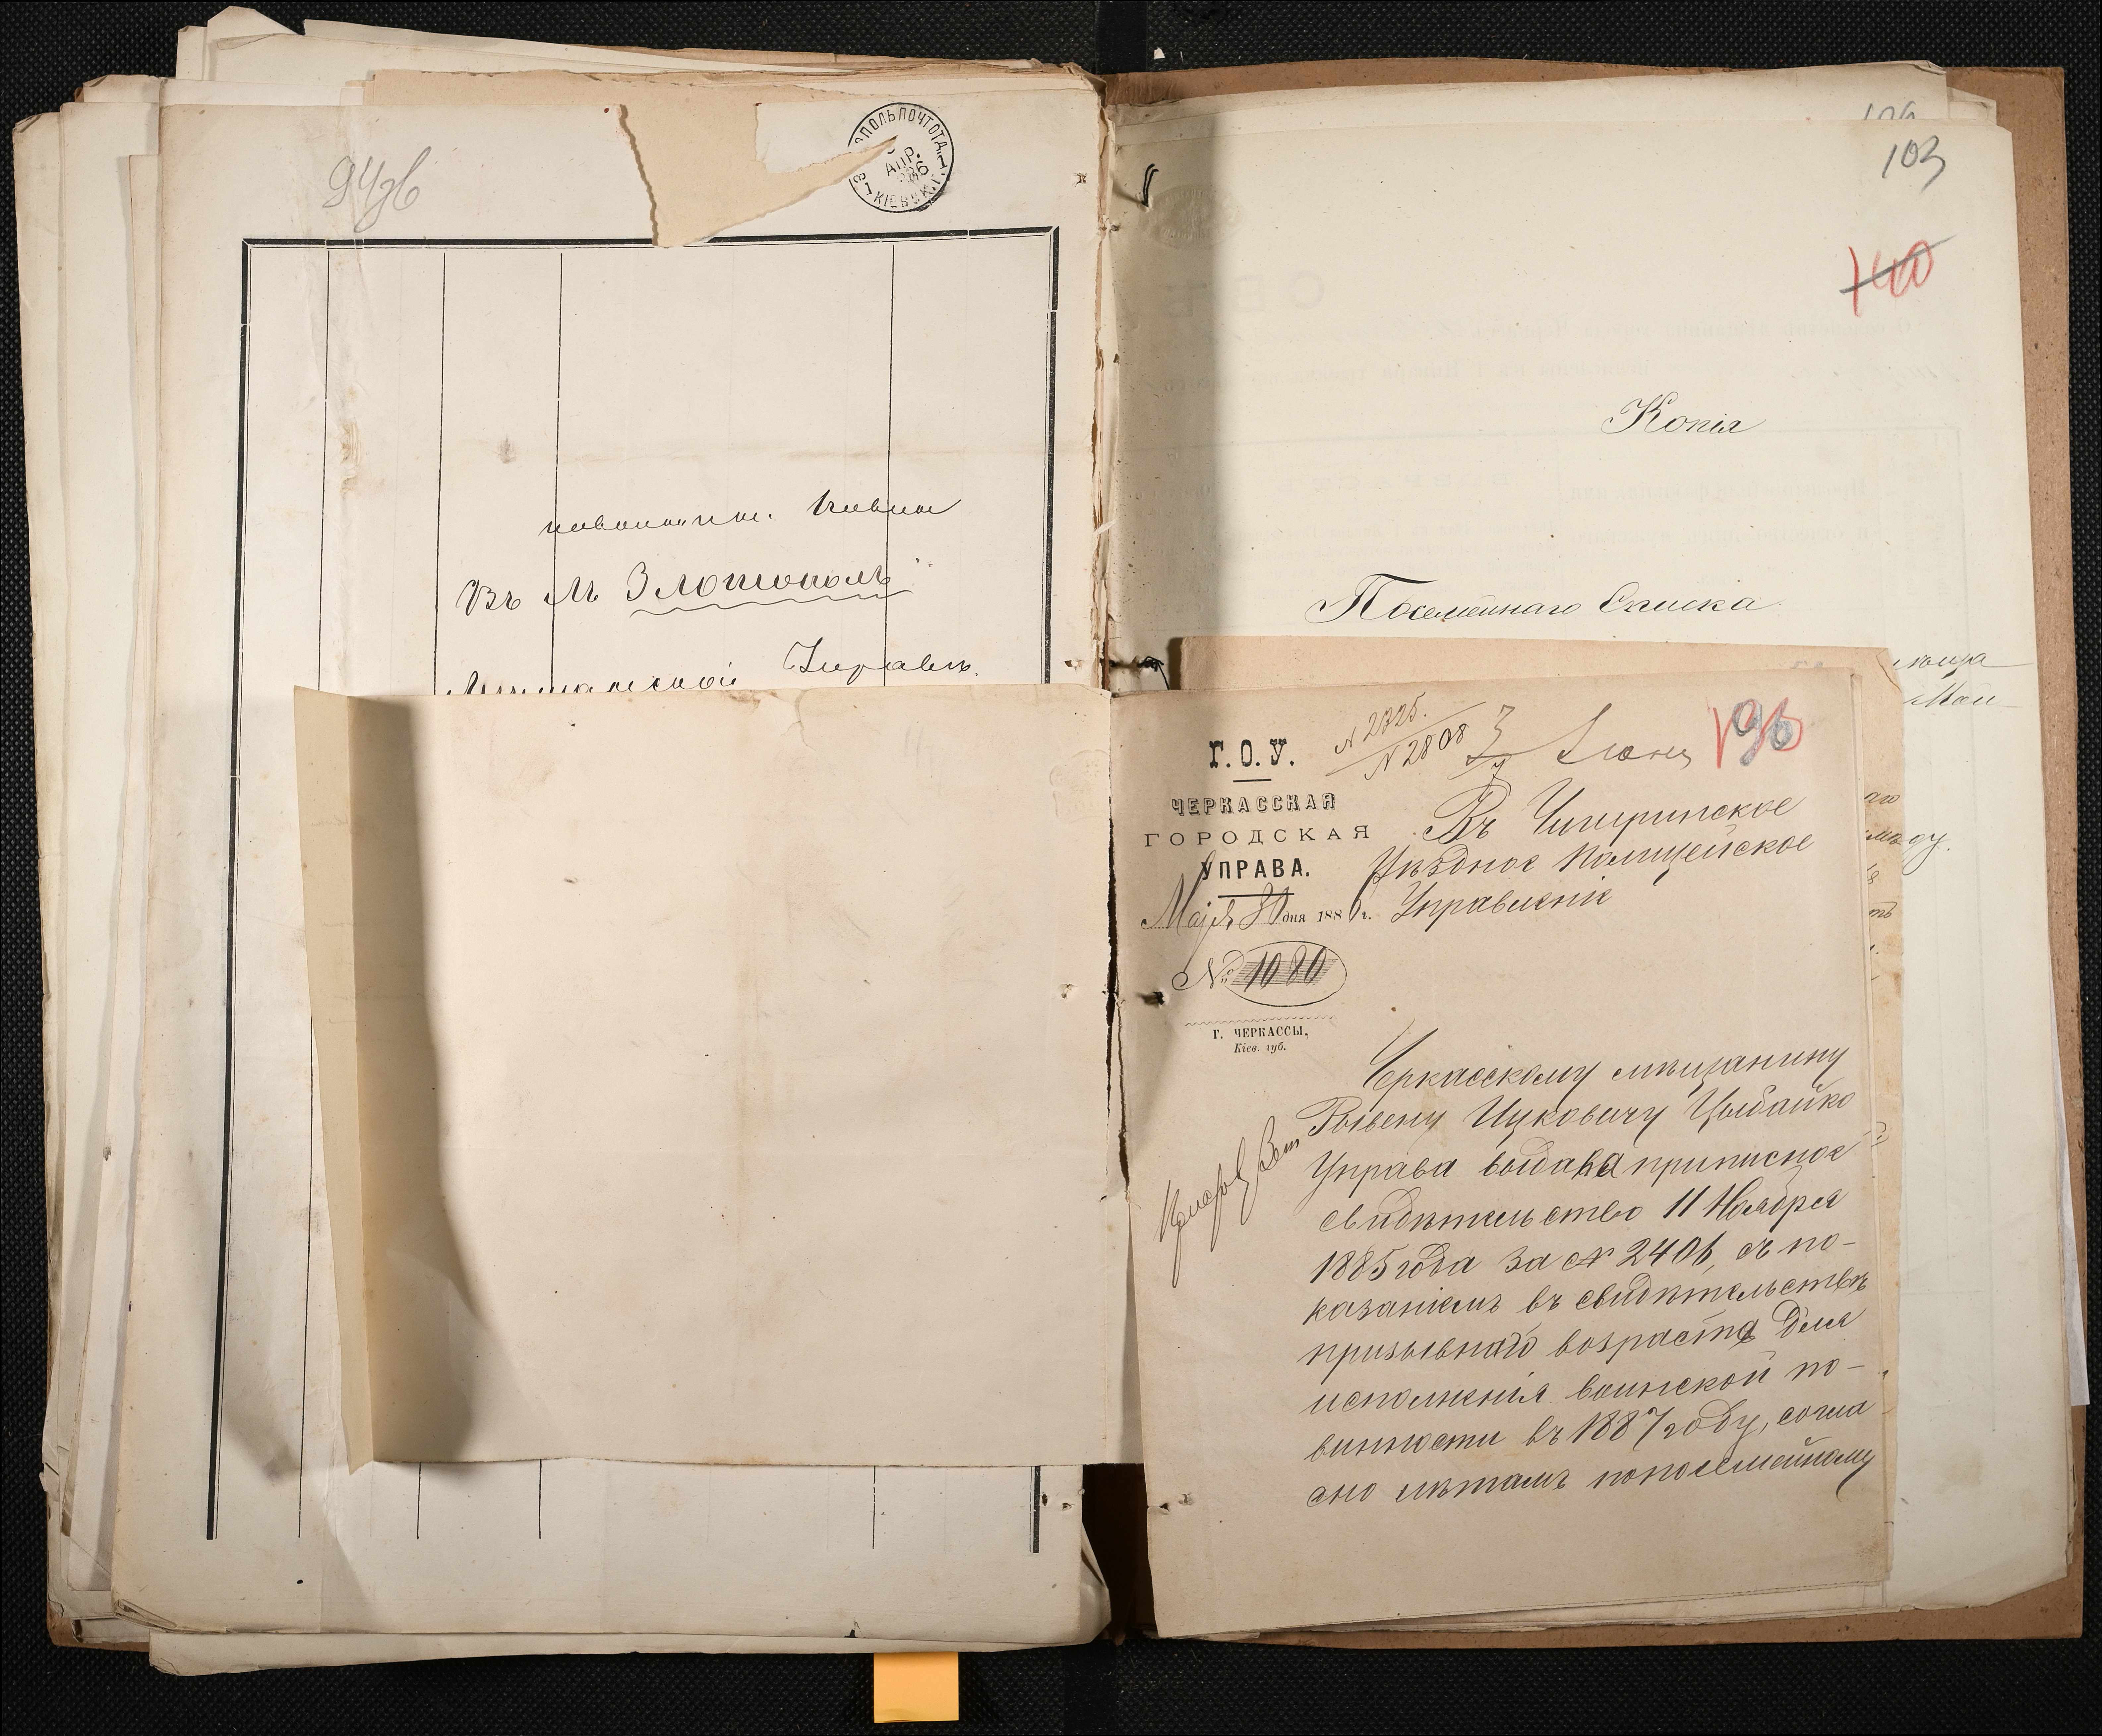 94 об
ПОЧТ. ОТД.
АПР.
КІЕВСК. Г.
Въ М Златополь
Мѣщанской Управѣ.
103
140
Копія
Посемейнаго Списка
Г. О. У.
ЧЕРКАССКАЯ
ГОРОДСКАЯ
УПРАВА.
Мая 30 дня 1886 г.
№ 1080
Г. ЧЕРКАССЫ,
Кіев. губ.
N 2325.
N 2808
3 Іюня
Въ Чигиринское
Уѣздное Полицейское
Управленіе
Черкасскому мѣщанину
Рывену Ицковичу Цыбайко
Управа выдана приписное
свидѣтельство 11 Ноября
1885 года за № 2406, съ по-
казаніемъ въ свидѣтельствѣ
призывнаго возраста для
исполненія воинской по-
винности въ 1887 году, согла
сно лѣтамъ попосемейному